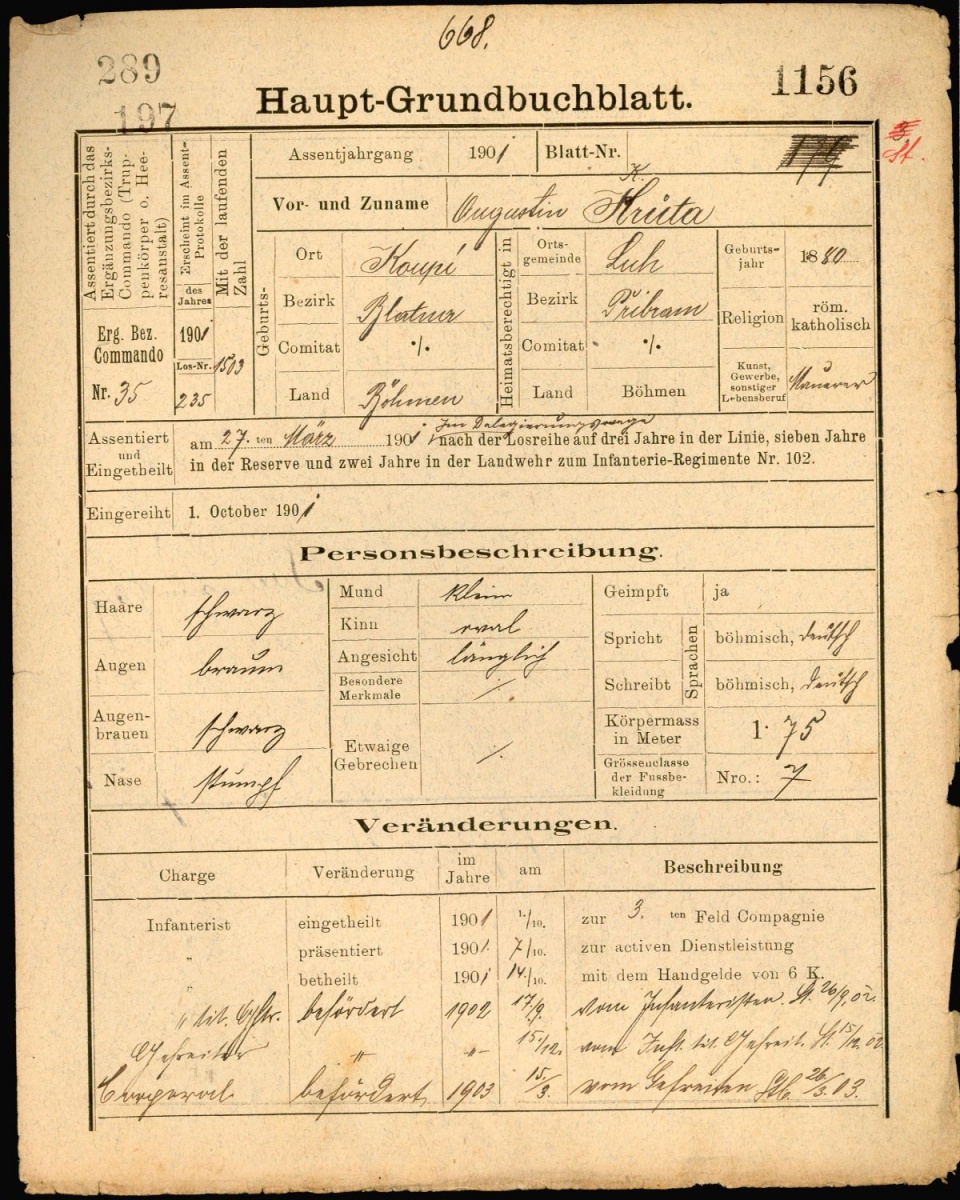 668.
289
197
1156
Haupt-Grundbuchblatt.
Assentiert durch das Ergänzungsbezirks-Commando (Truppenkörper o. Heeresanstalt)
Erg. Bez. Commando
Nr. 35
Erscheint im Assent-Protokolle
des Jahres
1901
Los-Nr.
235
Mit der laufenden Zahl
1503
Assentjahrgang 1901 Blatt-Nr.
Vor- und Zuname Augustin Krůta
K.
Geburts-
Ort Koupí
Bezirk Blatna
Comitat ·/.
Land Böhmen
Heimatsberechtigt in
Ortsgemeinde Luh
Bezirk Přibram
Comitat ·/.
Land Böhmen
Geburtsjahr 1880
Religion röm. katholisch
Kunst, Gewerbe, sonstiger Lebensberuf Maurer
Assentiert und Eingetheilt
Im Delegierungswege
am 27. ten März 1901 nach der Losreihe auf drei Jahre in der Linie, sieben Jahre
in der Reserve und zwei Jahre in der Landwehr zum Infanterie-Regimente Nr. 102.
Eingereiht 1. October 1901
Personsbeschreibung.
Haare schwarz
Augen braun
Augenbrauen schwarz
Nase stumpf
Mund klein
Kinn oval
Angesicht länglich
Besondere Merkmale ·/.
Etwaige Gebrechen ·/.
Geimpft ja
Sprachen
Spricht böhmisch, deutsch
Schreibt böhmisch, deutsch
Körpermass in Meter 1· 75
Grössenclasse der Fussbekleidung Nro.: 7
Veränderungen.
Charge Veränderung im Jahre am Beschreibung
Infanterist eingetheilt 1901 1./10. zur 3. ten Feld Compagnie
„ präsentiert 1901 7/10. zur activen Dienstleistung
„ betheilt 1901 14/10. mit dem Handgelde von 6 K.
„ tit. Gftr. befördert 1902 17/9. vom Infanteristen St. 26/9. 02.
Gefreiter „ „ 15./12. vom Inft. tit. Gefreit. St. 15/12. 02
Corporal befördert 1903 15./3. vom Gefreiten Stb. 26/3. 03.